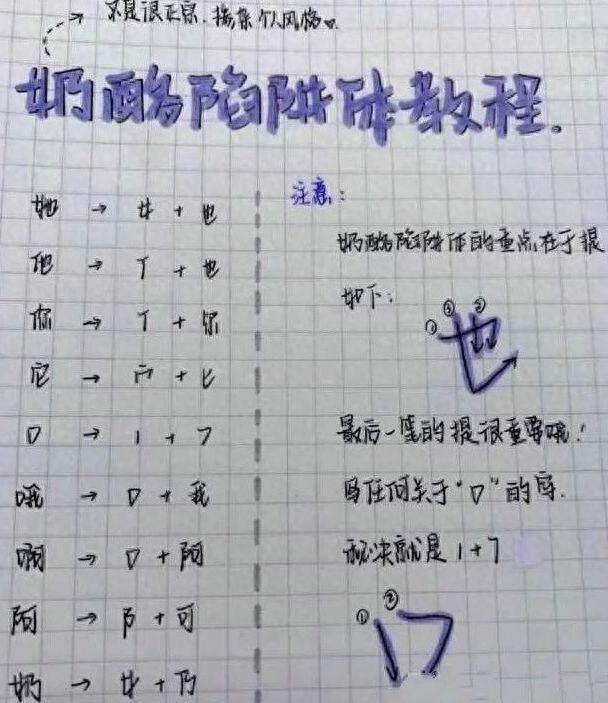 不是很正宗,掺杂个人风格
奶酪陷阱体教程.
她 → 女 + 也
他 → 亻 + 也
你 → 亻 + 尔
它 → 宀 + 匕
口 → 1 + 7
哦 → 口 + 我
啊 → 口 + 阿
阿 → 阝 + 可
奶 → 女 + 乃
注意:
奶酪陷阱体的重点在于提
如下:
① ③ ②
也
最后一笔的提很重要哦!
写任何关于“口”的字.
秘诀就是 1+7
① ②
口